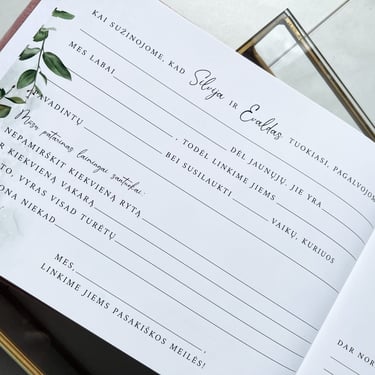 KAI SUŽINOJOME, KAD Silvija IR Evaldas TUOKIASI, PAGALVOJOM
MES LABAI
DĖL JAUNŲJŲ, JIE YRA
PAVADINTŲ , TODĖL LINKIME JIEMS
BEI SUSILAUKTI VAIKŲ, KURIUOS
Mūsų patarimas laimingai santuokai:
NEPAMIRŠKIT KIEKVIENĄ RYTĄ
IR KIEKVIENĄ VAKARĄ
TO, VYRAS VISAD TURĖTŲ
ONA NIEKAD
MES,
LINKIME JIEMS PASAKIŠKOS MEILĖS!
DAR NOR